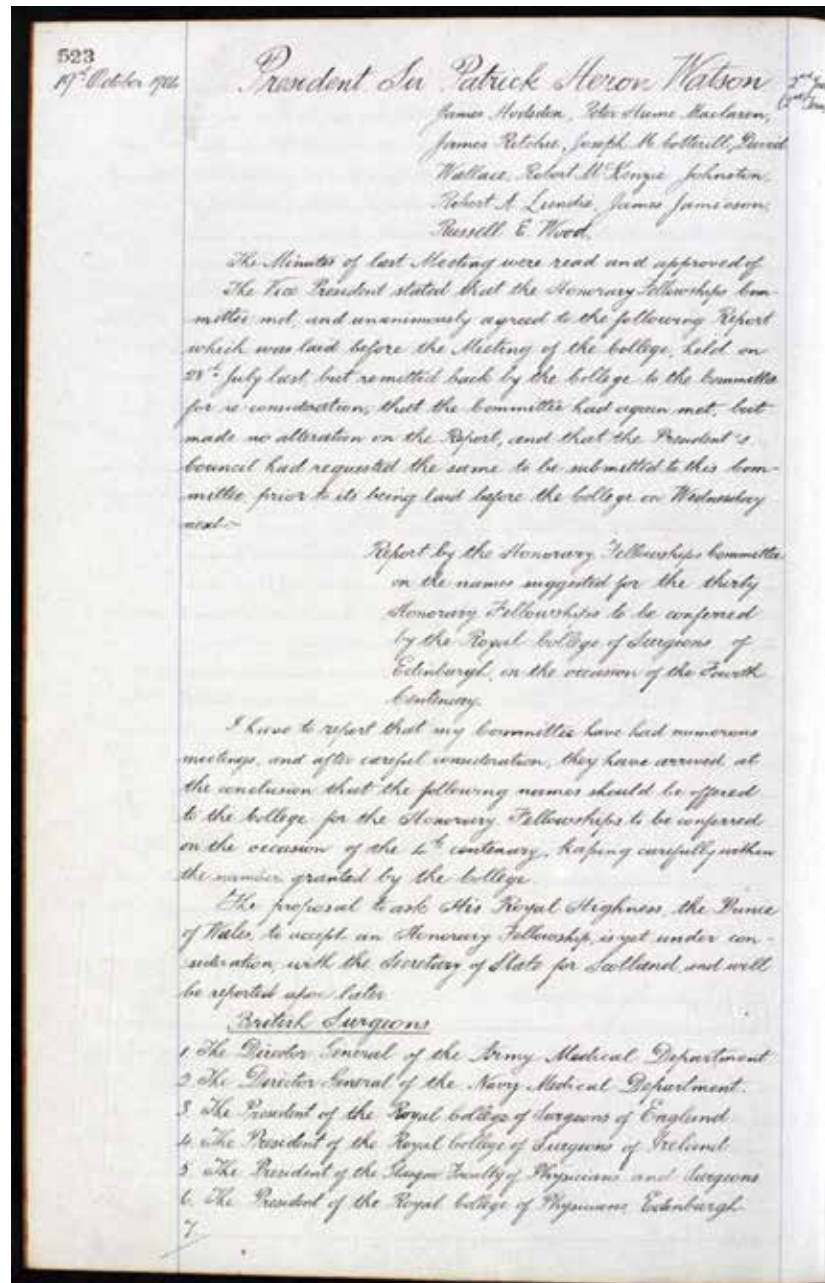 523
19th October 1904
President Sir Patrick Heron Watson
James Hodsdon, Peter Hume Maclaren,
James Ritchie, Joseph M. Cotterill, David
Wallace, Robert McKenzie Johnston,
Robert A. Lundie, James Jamieson,
Russell E. Wood.
The Minutes of last Meeting were read and approved of
The Vice President stated that the Honorary Fellowships Com-
mittee met, and unanimously agreed to the following Report
which was laid before the Meeting of the College, held on
July last but remitted back by the College to the Committee
for re consideration, that the Committee had again met, but
made no alteration on the Report, and that the President's
Council had requested the same to be submitted to this Com-
mittee prior to its being laid before the College on Wednesday
next
Report by the Honorary Fellowships Committee
on the names suggested for the thirty
Honorary Fellowships to be conferred
by the Royal College of Surgeons of
Edinburgh, on the occasion of the Fourth
Centenary.
I have to report that my Committee have had numerous
meetings, and after careful consideration, they have arrived at
the conclusion that the following names should be offered
to the College for the Honorary Fellowships to be conferred
on the occasion of the 4th centenary, keeping carefully within
the number granted by the College.
The proposal to ask His Royal Highness, the Prince
of Wales, to accept an Honorary Fellowship, is yet under con-
sideration, with the Secretary of State for Scotland, and will
be reported upon later
British Surgeons
1. The Director General of the Army Medical Department
2. The Director General of the Navy Medical Department.
3. The President of the Royal College of Surgeons of England
4. The President of the Royal College of Surgeons of Ireland
5. The President of the Glasgow Faculty of Physicians and Surgeons
6. The President of the Royal College of Physicians Edinburgh
7